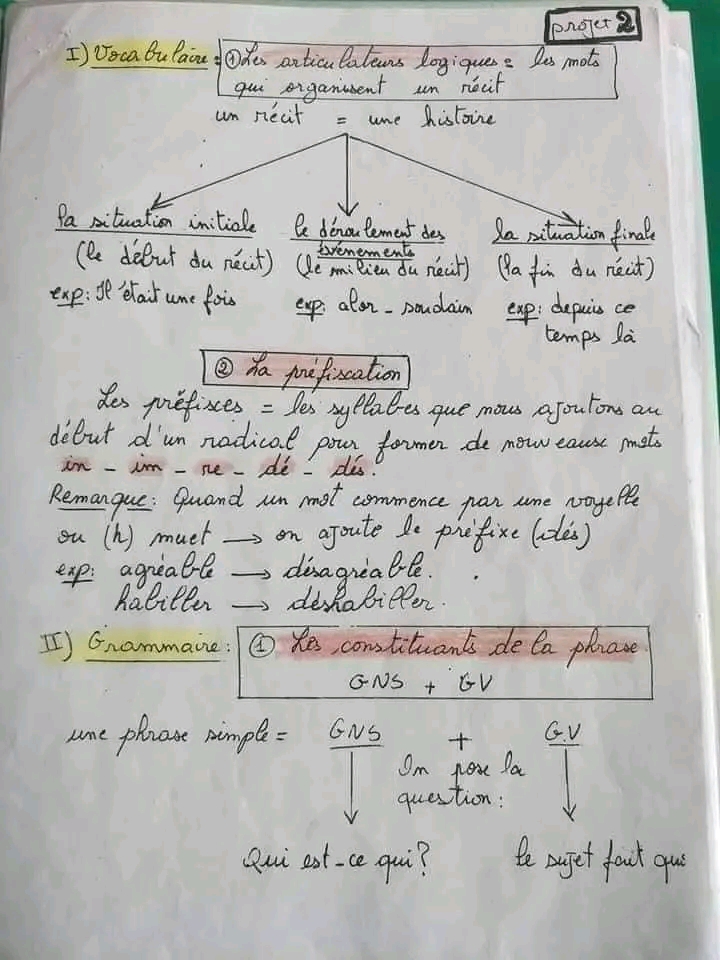 projet 2
I) Vocabulaire : ① Les articulateurs logiques = les mots
qui organisent un récit
un récit = une histoire
la situation initiale le déroulement des évènements la situation finale
(le début du récit) (le milieu du récit) (la fin du récit)
exp: Il était une fois exp: alor - soudain exp: depuis ce
temps là
② La préfiscation
Les préfisces = les syllabes que nous ajoutons au
début d'un radical pour former de nouveause mots
in - im - re - dé - dés.
Remarque: Quand un mot commence par une voyelle
ou (h) muet → on ajoute le préfixe (dés)
exp: agréable → désagréable.
habiller → déshabiller.
II) Grammaire: ① Les constituants de la phrase.
GNS + GV
une phrase simple = GNS + G.V
On pose la
question :
Qui est-ce qui? le sujet fait que